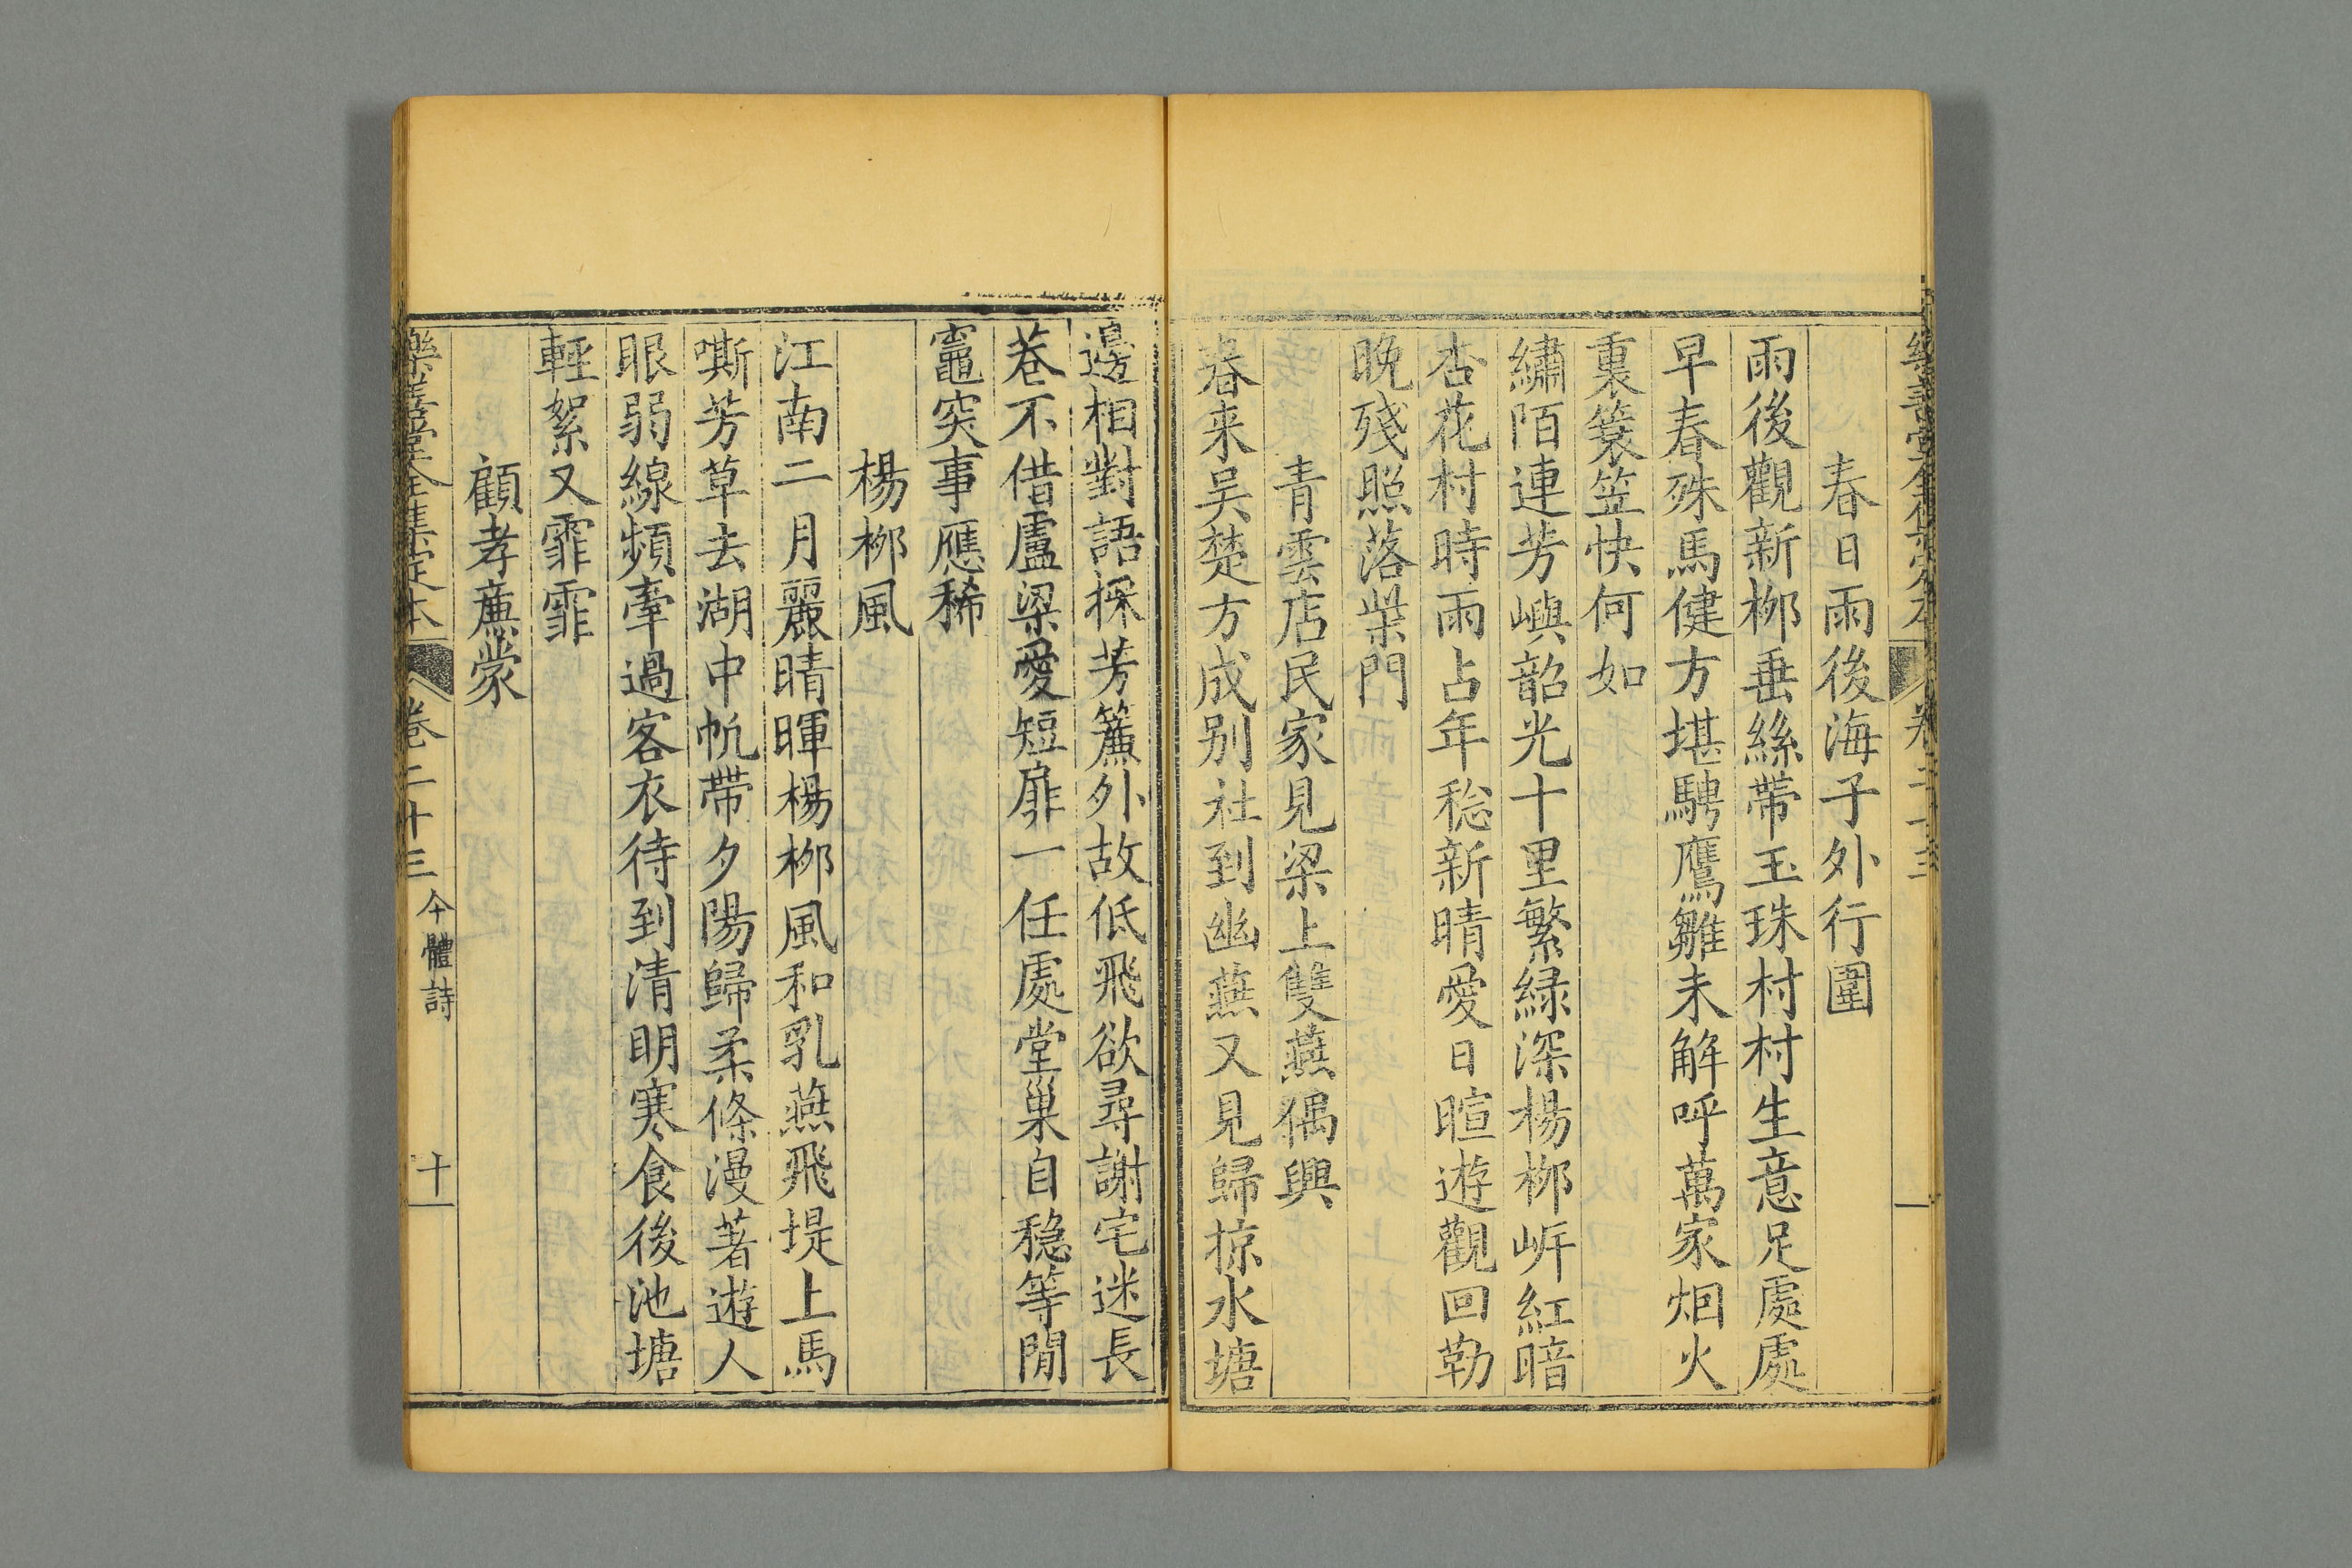 春日雨後海子外行圍
雨後觀新栁垂絲帶玉珠村村生意足處處
早春殊馬健方堪騁鷹雛未解呼萬家烟火
裏簑笠快何如
繡陌連芳嶼韶光十里繁緑深楊栁岍紅暗
杏花村時雨占年稔新晴愛日暄遊觀回勒
晚殘照落柴門
青雲店民家見梁上雙燕偶興
春来吴楚方成别社到幽燕又見歸掠水塘
邊相對語採芳簾外故低飛欲尋謝宅迷長
巷不借盧梁愛短扉一任處堂巢自穏等閒
竈突事應稀
楊栁風
江南二月麗晴暉楊栁風和乳燕飛堤上馬
嘶芳草去湖中帆帶夕陽歸柔條漫著遊人
眼弱線頻牽過客衣待到清明寒食後池塘
輕絮又霏霏
顧孝亷裳
樂善堂全集定本 卷二十三 今體詩 十一